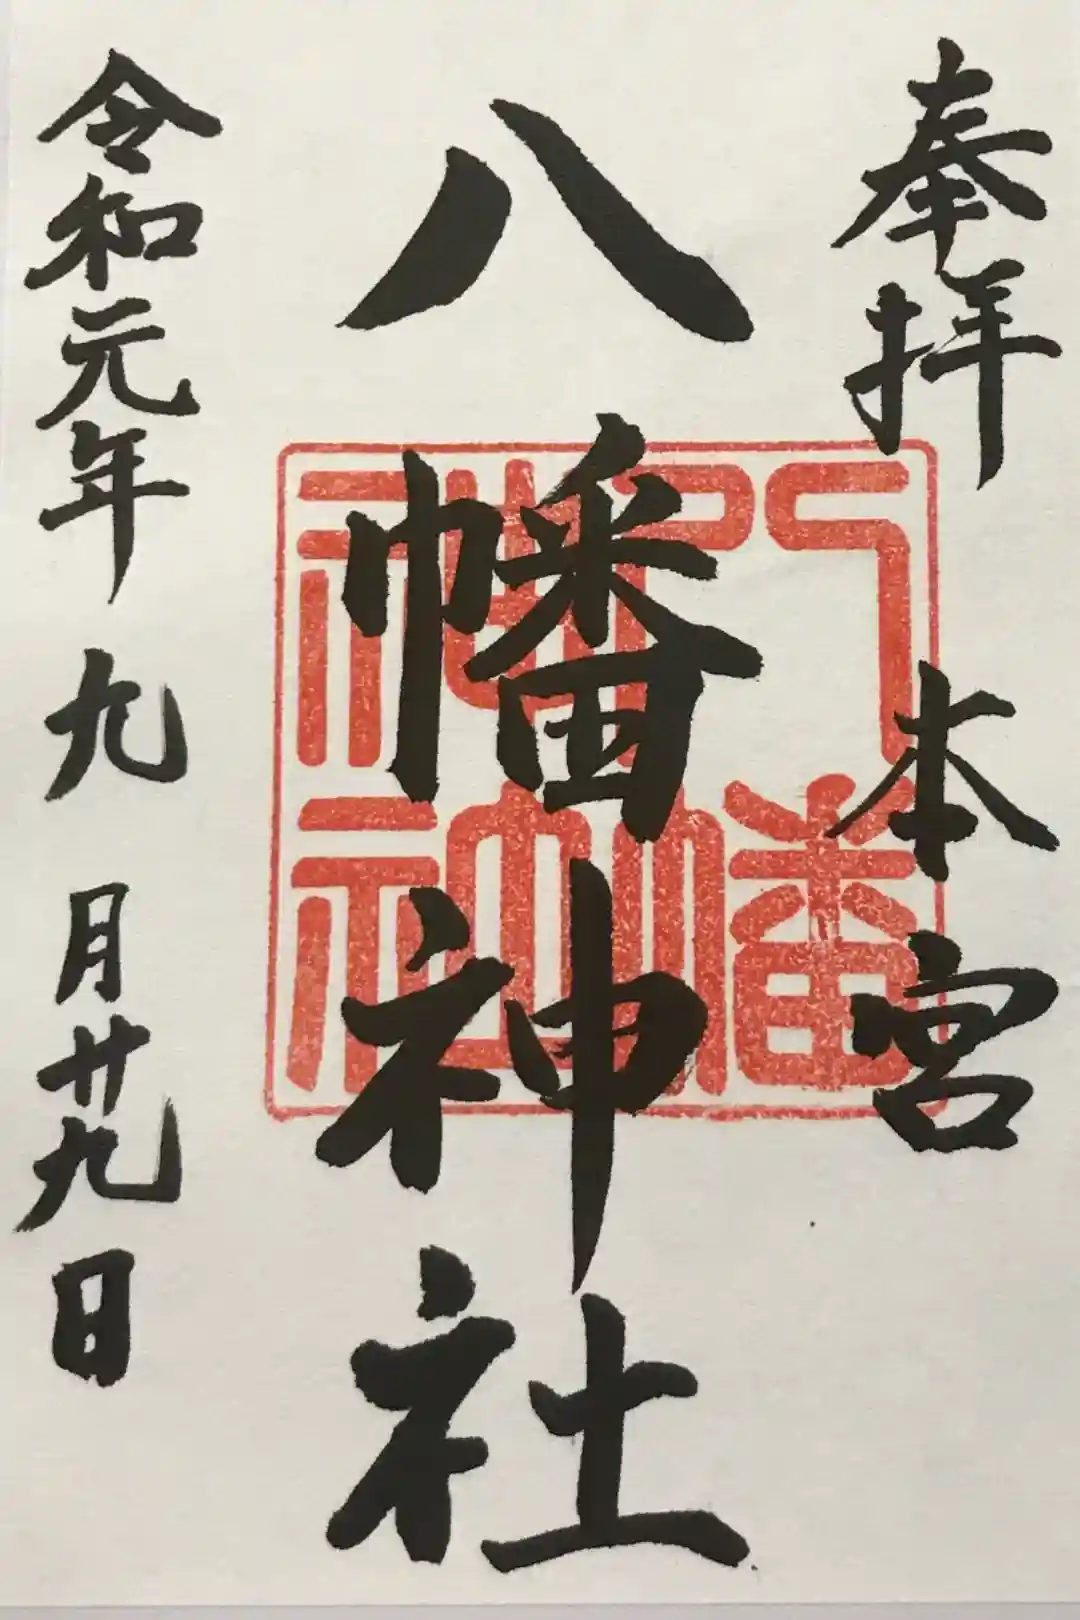 奉拝 本宮
八幡神社
八幡
神社
令和元年九月廿九日